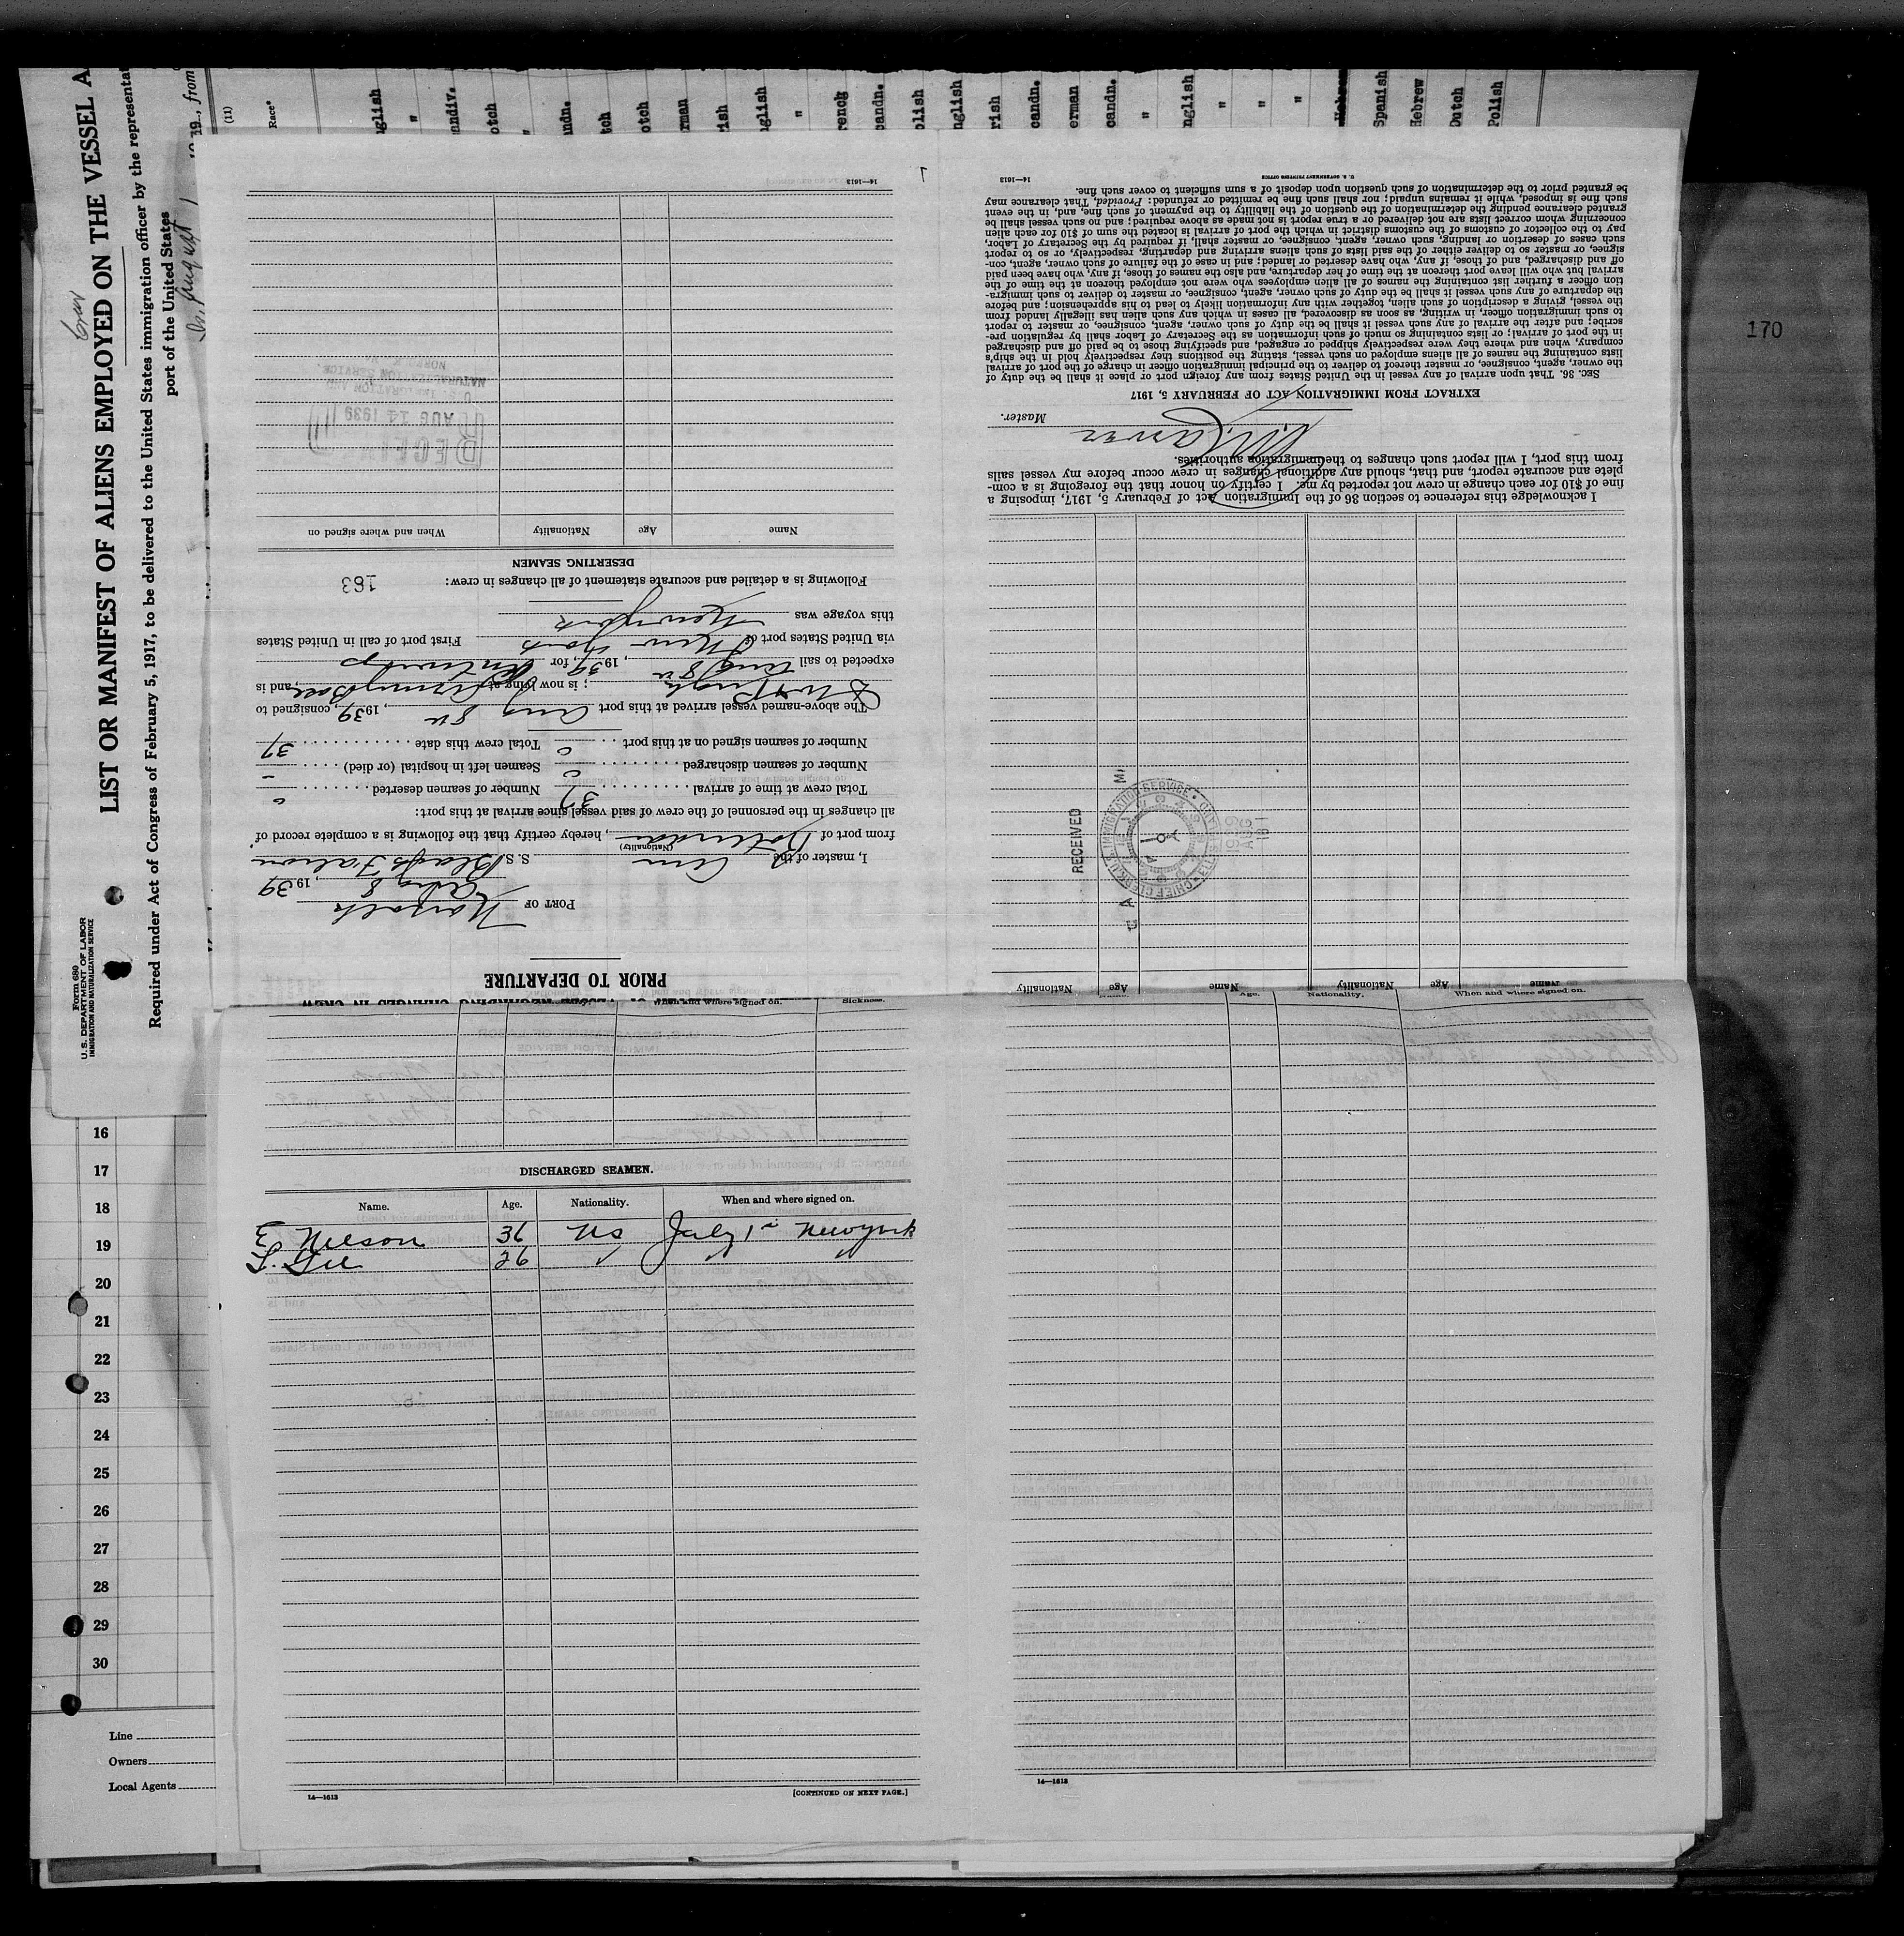 170
Form 680
U. S. DEPARTMENT OF LABOR
IMMIGRATION AND NATURALIZATION SERVICE
LIST OR MANIFEST OF ALIENS EMPLOYED ON THE VESSEL A
Required under Act of Congress of February 5, 1917, to be delivered to the United States immigration officer by the representat
port of the United States
August 1
19 , from
(11)
Race*
nglish
"
andiv.
otch
"
andn.
tch
otch
rman
ish
nglish
"
rench
candn.
olish
nglish
rish
candn.
erman
candn.
"
nglish
"
"
"
Hebrew
Spanish
Hebrew
Dutch
Polish
16
17
18
19
20
21
22
23
24
25
26
27
28
29
30
Line
Owners
Local Agents
PRIOR TO DEPARTURE
PORT OF Norfolk
Aug 8, 1939
I, master of the Am S. S. Black Falcon
(Nationality)
from port of Rotterdam, hereby certify that the following is a complete record of
all changes in the personnel of the crew of said vessel since arrival at this port:
Total crew at time of arrival 37 Number of seamen deserted 0
Number of seamen discharged 0 Seamen left in hospital (or died) –
Number of seamen signed on at this port 0 Total crew this date 37
The above-named vessel arrived at this port Aug 8th, 1939, consigned to
; is now lying at Army Base, and is
expected to sail Aug 8th, 1939, for Antwerp
via United States port of New York First port of call in United States
this voyage was New York
Following is a detailed and accurate statement of all changes in crew:
163
DESERTING SEAMEN
Name Age Nationality When and where signed on
RECEIVED
AUG 14 1939
U. S. IMMIGRATION AND
NATURALIZATION SERVICE
NORFOLK
14—1613
Name Age Nationality Name Age Nationality
RECEIVED
CHIEF CLERK U.S. IMMIGRATION SERVICE
1939
AUG
I acknowledge this reference to section 36 of the Immigration Act of February 5, 1917, imposing a
fine of $10 for each change in crew not reported by me. I certify on honor that the foregoing is a com-
plete and accurate report, and that, should any additional changes in crew occur before my vessel sails
from this port, I will report such changes to the immigration authorities.
Master.
EXTRACT FROM IMMIGRATION ACT OF FEBRUARY 5, 1917
SEC. 36. That upon arrival of any vessel in the United States from any foreign port or place it shall be the duty of
the owner, agent, consignee, or master thereof to deliver to the principal immigration officer in charge of the port of arrival
lists containing the names of all aliens employed on such vessel, stating the positions they respectively hold in the ship's
company, when and where they were respectively shipped or engaged, and specifying those to be paid off and discharged
in the port of arrival; or lists containing so much of such information as the Secretary of Labor shall by regulation pre-
scribe; and after the arrival of any such vessel it shall be the duty of such owner, agent, consignee, or master to report
to such immigration officer, in writing, as soon as discovered, all cases in which any such alien has illegally landed from
the vessel, giving a description of such alien, together with any information likely to lead to his apprehension; and before
the departure of any such vessel it shall be the duty of such owner, agent, consignee, or master to deliver to such immigra-
tion officer a further list containing the names of all alien employees who were not employed thereon at the time of the
arrival but who will leave port thereon at the time of her departure, and also the names of those, if any, who have been paid
off and discharged, and of those, if any, who have deserted or landed; and in case of the failure of such owner, agent, con-
signee, or master so to deliver either of the said lists of such aliens arriving and departing, respectively, or so to report
such cases of desertion or landing, such owner, agent, consignee, or master shall, if required by the Secretary of Labor,
pay to the collector of customs of the customs district in which the port of arrival is located the sum of $10 for each alien
concerning whom correct lists are not delivered or a true report is not made as above required; and no such vessel shall be
granted clearance pending the determination of the question of the liability to the payment of such fine, and, in the event
such fine is imposed, while it remains unpaid; nor shall such fine be remitted or refunded: Provided, That clearance may
be granted prior to the determination of such question upon deposit of a sum sufficient to cover such fine.
U. S. GOVERNMENT PRINTING OFFICE
14—1613
When and where signed on. Sickness.
DISCHARGED SEAMEN.
Name. Age. Nationality. When and where signed on.
E. Nelson 36 US July 1st New York
26 " " "
14—1613
[CONTINUED ON NEXT PAGE.]
Name. Age. Nationality. When and where signed on.
14—1613